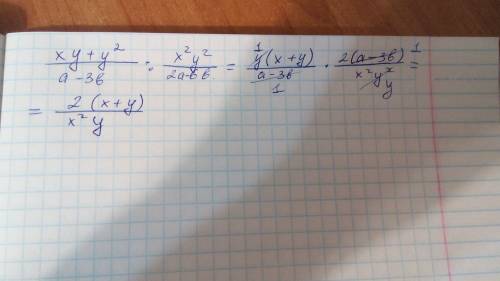 (xy + y²)/(a - 3в) : (x²y²)/(2a - 6в) = (y(x + y))/(a - 3в) · (2(a - 3в))/(x²y²) =
= (2(x + y))/(x²y)